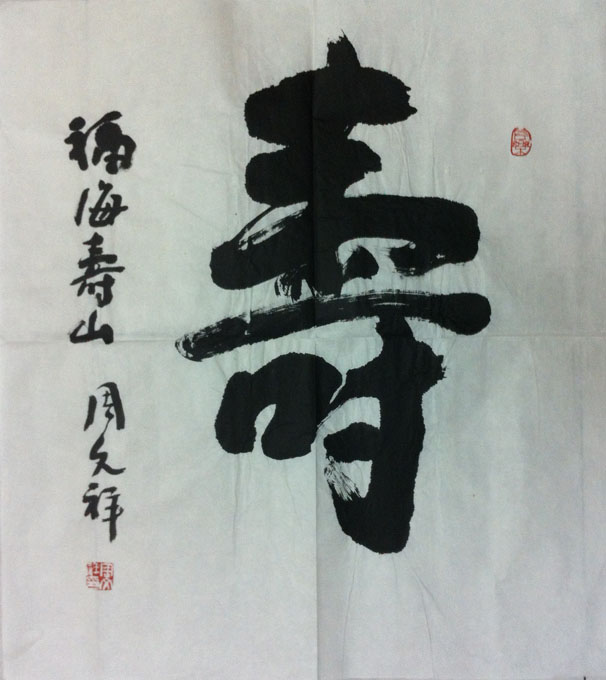 壽
福海寿山
周文祥